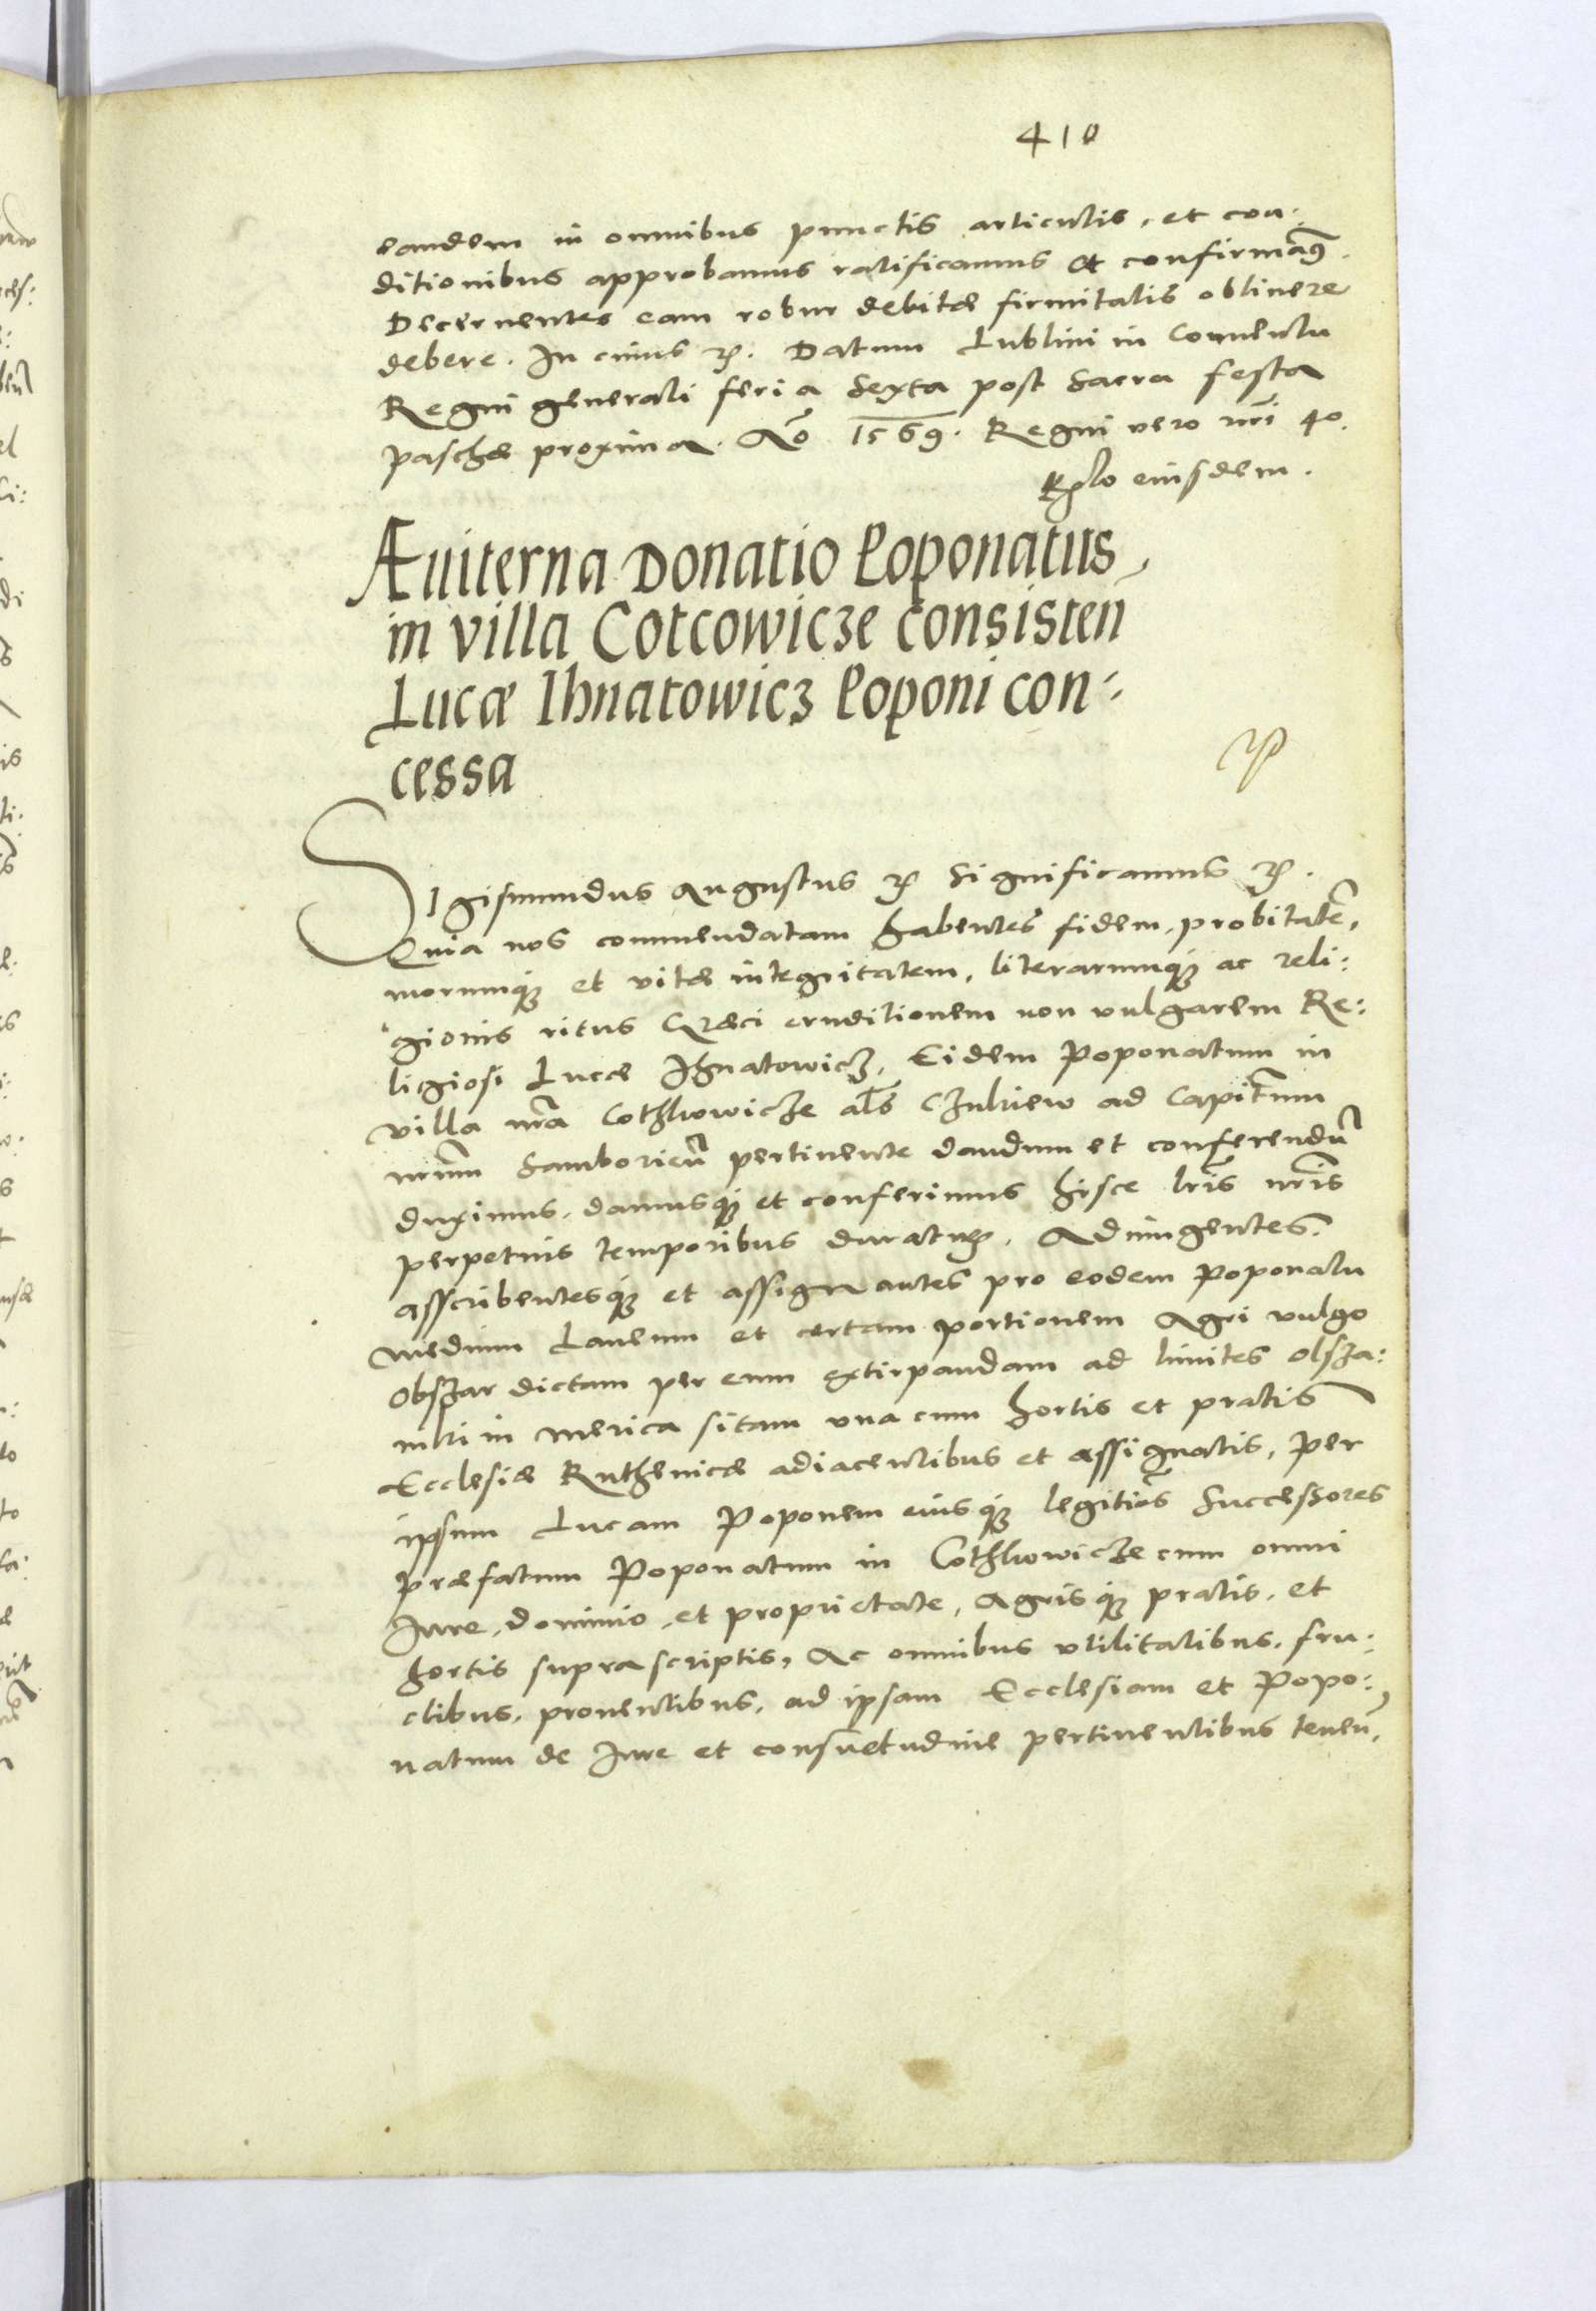 410
eandem in omnibus punctis articulis, et con:
ditionibus approbamus ratificamus et confirmamꝰ.
Decernentes eam robur debitæ firmitatis obtinere
debere. In cuius ꝛꝭ. Datum Lublini in Conuentu
Regni generali feria sexta post sacra festa
paschæ proxima. Aõ 1569. Regni vero nr̃i 40.
eiusdem.
Æuiterna Donatio Poponatus
in villa Cotcowicze consisten
Lucæ Ihnatowicz Poponi con:
cessa
Sigismundus Augustus ꝛꝭ significamus ꝛꝭ.
Quia nos commendatam habentes fidem, probitatẽ,
morumqꝫ et vitæ integritatem, literarumqꝫ ac reli:
gionis ritus Græci eruditionem non vulgarem Re:
ligiosi Lucæ Ihnatowicz, Eidem Poponatum in
villa nr̃a Cothkowicze al̃s Czukiew ad Capitm̃um
nr̃um Samborieñ pertinente dandum et conferendũ
duximus, damusqꝫ et conferimus hisce lr̃is nr̃is
perpetuis temporibus duraturꝭ. Adiungentes
asscribentesqꝫ et assignantes pro eodem Poponatu
medium Laneum et certam portionem Agri vulgo
Obszar dictam per eum extirpandam ad limites Olsza:
niki in merica sitam vna cum hortis et pratis
Ecclesiæ Ruthenicæ adiacentibus et assignatis, per
ipsum Lucam Poponem eiusqꝫ legitĩos Successores
præfatum Poponatum in Cothkowicze cum omni
Iure, dominio, et proprietate, Agrisqꝫ pratis, et
hortis suprascriptis, Ac omnibus vtilitatibus, fru:
ctibus, prouentibus, ad ipsam Ecclesiam et Popo:
natum de Iure et consuetudine pertinentibus teneñ,